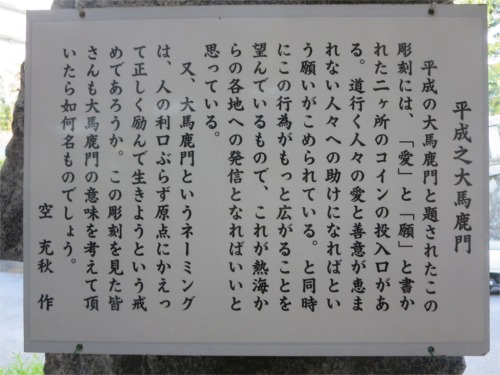 平成之大馬鹿門
平成の大馬鹿門と題されたこの
彫刻には、「愛」と「願」と書か
れた二ヶ所のコインの投入口があ
る。道行く人々の愛と善意が恵ま
れない人々への助けになればとい
う願いがこめられている。と同時
にこの行為がもっと広がることを
望んでいるもので、これが熱海か
らの各地への発信となればいいと
思っている。
又、大馬鹿門というネーミング
は、人の利口ぶらず原点にかえっ
て正しく励んで生きようという戒
めであろうか。この彫刻を見た皆
さんも大馬鹿門の意味を考えて頂
いたら如何名ものでしょう。
空 充秋 作